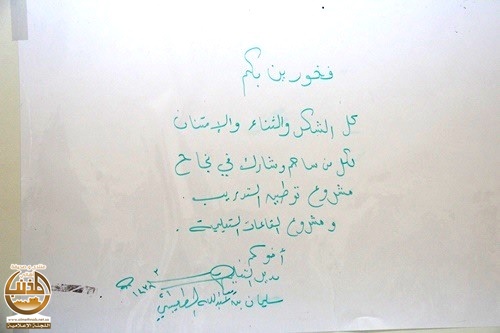 فخورين بكم
كل الشكر والثناء والامتنان
لكل من ساهم وشارك في نجاح
مشروع توطين التدريب.
ومشروع القاعات التعليمية.
أخوكم
مدير التعليم
سليمان بن عبدالله
اللجنة الإعلامية